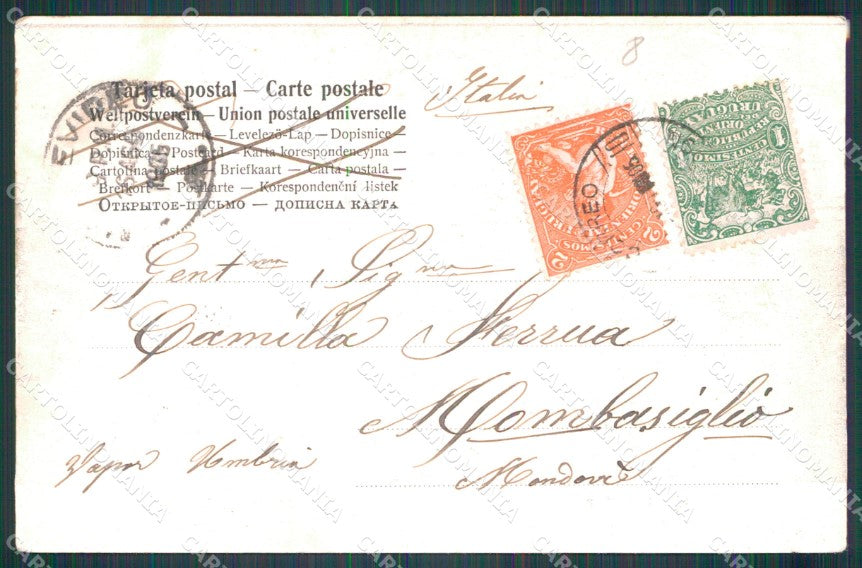 8
Tarjeta postal — Carte postale
Weltpostverein — Union postale universelle
Correspondenzkarte — Levelező-Lap — Dopisnice
Dopisnica — Postcard — Karta korespondencyjna —
Cartolina postale — Briefkaart — Carta postala —
Brefkort — Postkarte — Korespondenční listek
Открытое-письмо — дописна карта
Italia
2 CENTESIMOS 2
1 CENTESIMO 1
REPUBLICA ORIENTAL
URUGUAY
Gent ma Sig na
Camilla Ferrua
Mombasiglio
Mondovì
Vapor Umbria
CARTOLINOMANIA